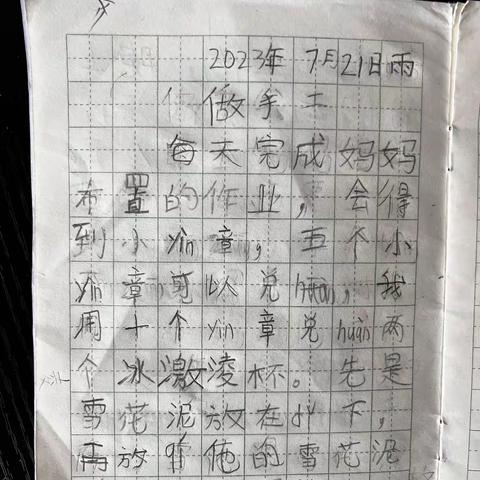 2023年 7月21日雨
做手工
每天完成妈妈
布置的作业，会得
到小yìn章，五个小
yìn章可以兑huàn，我
用十个yìn章兑huàn两
个冰激凌杯。先是
雪花泥放在dǐ下，
再放其他的雪花泥